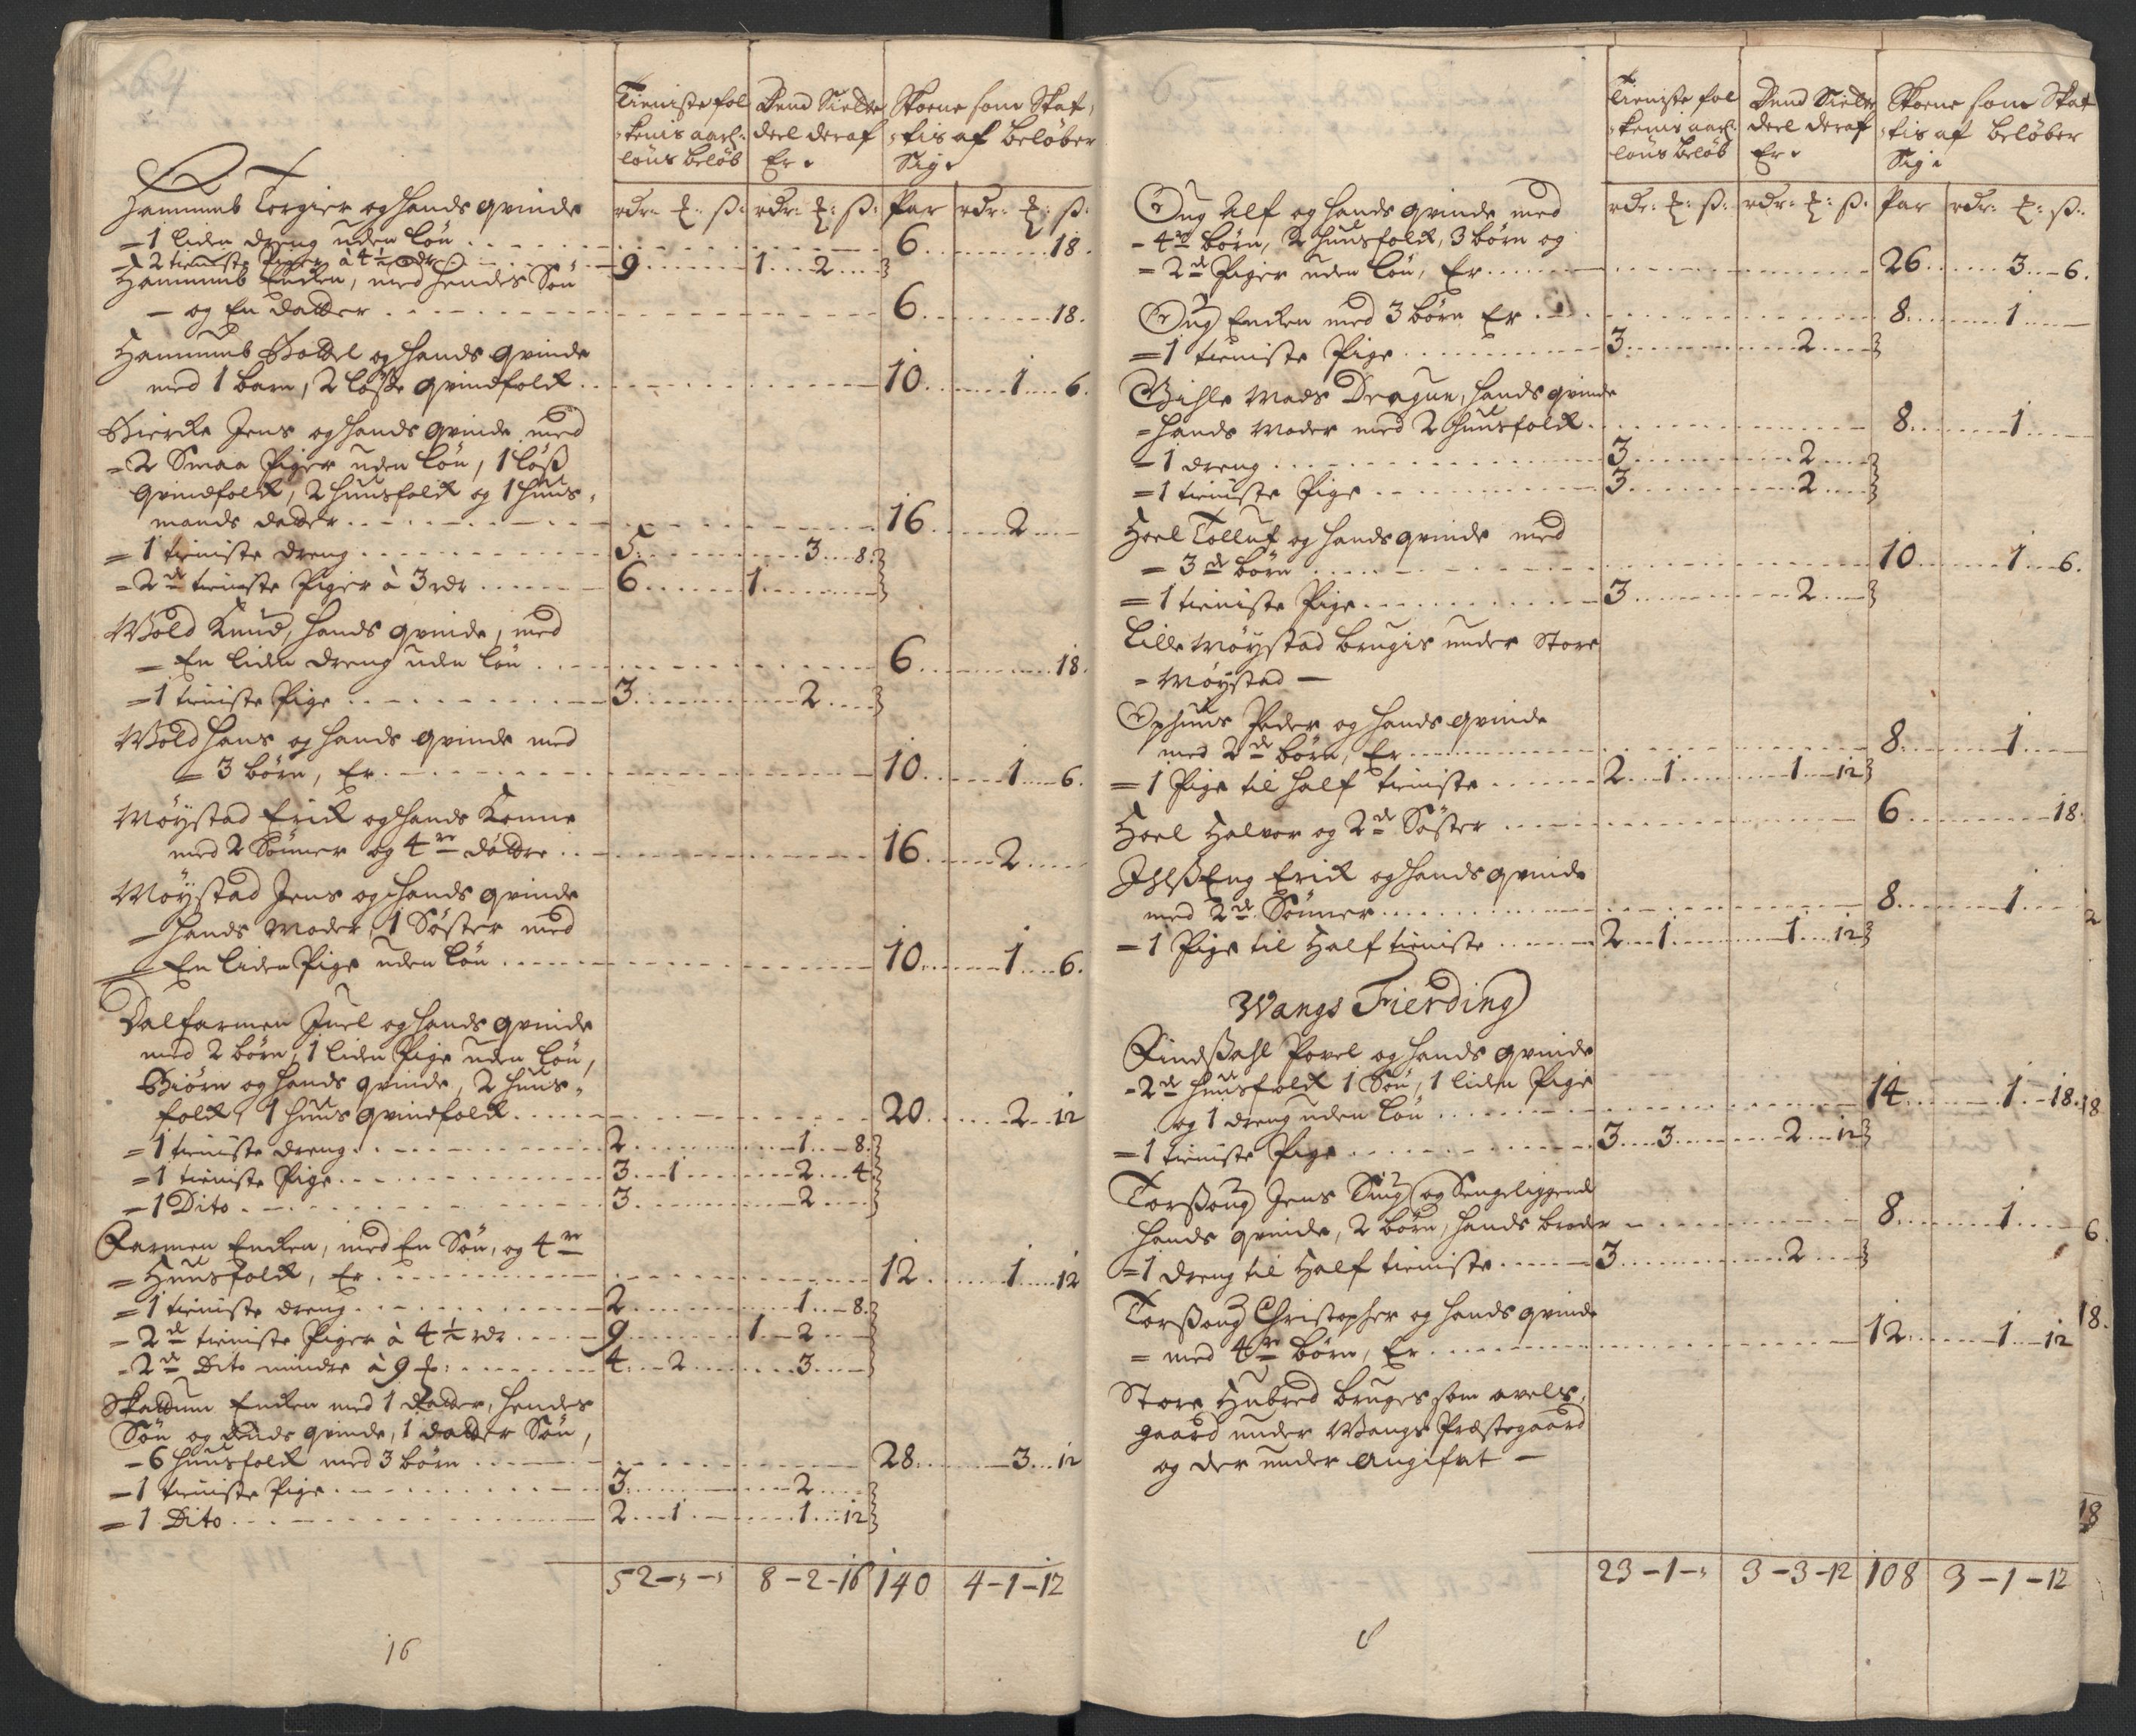 Tieniste fol Dend Siette Skoene som Skat-
-kenis aarl: deel deraf -tis af beløber
løns beløb Er. Sig.
rdr. ₰: ß: rdr: ₰: ß: Par rdr: ₰: ß:
Hammb Torgier og hands qvinde
= 1 liden dreng uden løn 6 18.
= 2 tieniste Piger à 4½ rdr 9 1 2
Hammb Encken, med hendes Søn
- og En datter 6 18.
Hammb Bottel og hands qvinde
med 1 barn, 2 løsse qvindfolck 10 1 6.
Biercke Jens og hands qvinde med
= 2 Smaa Piger uden løn, 1 løß
qvindfolck, 2 huusfolck og 1 huus-
mands datter 16 2
= 1 tieniste dreng 5 3 8.
= 2de tieniste Piger à 3 rdr 6 1
Wold Knud, hands qvinde, med
= En liden dreng uden løn 6 18.
= 1 tieniste Pige 3 2
Wold hans og hands qvinde med
= 3 børn, Er 10 1 6.
Møystad Erick og hands Konne
med 2 Sønner og 4re døttre 16 2
Møystad Jens og hands qvinde
- hands Moder, 1 Søster med
= En liden Pige uden løn 10 1 6.
Dalfarmen Juel og hands qvinde
med 2 børn, 1 liden Pige uden løn,
Biørn og hands qvinde, 2 huus-
folck, 1 huus qvindfolck 20 2 12
= 1 tieniste dreng 2 1 8.
= 1 tieniste Pige 3 1 2 4
= 1 Dito 3 2
Farmen Encken, med En Søn, og 4re
= Huusfolck, Er 12 1 12
= 1 tieniste dreng 2 1 8.
= 2de tieniste Piger à 4½ rdr 9 1 2
= 2de Dito mindre à 9 ₰: 4 2 3
Skattum Encken med 1 datter, hendes
Søn og dends qvinde, 1 datter Søn,
= 6 huusfolck med 3 børn 28 3 12
= 1 tieniste Pige 3 2
= 1 Dito 2 1 1 12
52 - " - " 8 - 2 - 16 140 4 - 1 - 12
16
Tieniste fol Dend Siette Skoene som Skat
-kenis aarl: deel deraf -tis af beløber
løns beløb Er. Sig.
rdr: ₰: ß: rdr: ₰: ß: Par rdr: ₰: ß:
Oug Alf og hands qvinde med
- 4re børn, 2 huusfolck, 3 børn og
= 2de Piger uden løn, Er 26 3 6.
Oug Encken med 3 børn Er 8 1
= 1 tieniste Pige 3 2
Bihle Mads Dragun, hands qvinde
= hands Moder med 2 huusfolck 8 1
= 1 dreng 3 2
= 1 tieniste Pige 3 2
Hoel Tolluf og hands qvinde med
= 3de børn 10 1 6.
= 1 tieniste Pige 3 2
Lille Møystad brugis under Store
= Møystad -
Ophuus Peder og hands qvinde
med 2de børn, Er 8 1
= 1 Pige til half tieniste 2 1 1 12
Hoel Halvor og 2de Søster 6 18.
Ihlß Eng Erick og hands qvinde
med 2de Sønner 8 1
= 1 Pige til Half tieniste 2 1 1 12
Wangs Fierding
Findßahl Povel og hands qvinde
= 2de huusfolck 1 Søn, 1 liden Pige
og 1 dreng uden løn 14 1 18.
= 1 tieniste Pige 3 3 2 12
Torßoug Jens Siug og Sengeliggende
hands qvinde, 2 børn, hands broder 8 1
= 1 dreng til Half tieniste 3 2
Torßoug Christopher og hands qvinde
= med 4re børn, Er 12 1 12
Store Hubred bruges som avels-
gaard under Wangs Præstegaard
og der under Angifvet -
23 - 1 - " 3 - 3 - 12 108 3 - 1 - 12